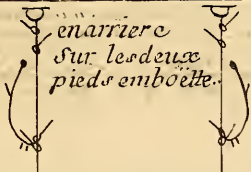 enarriere
sur les deux
pieds emboëtte.